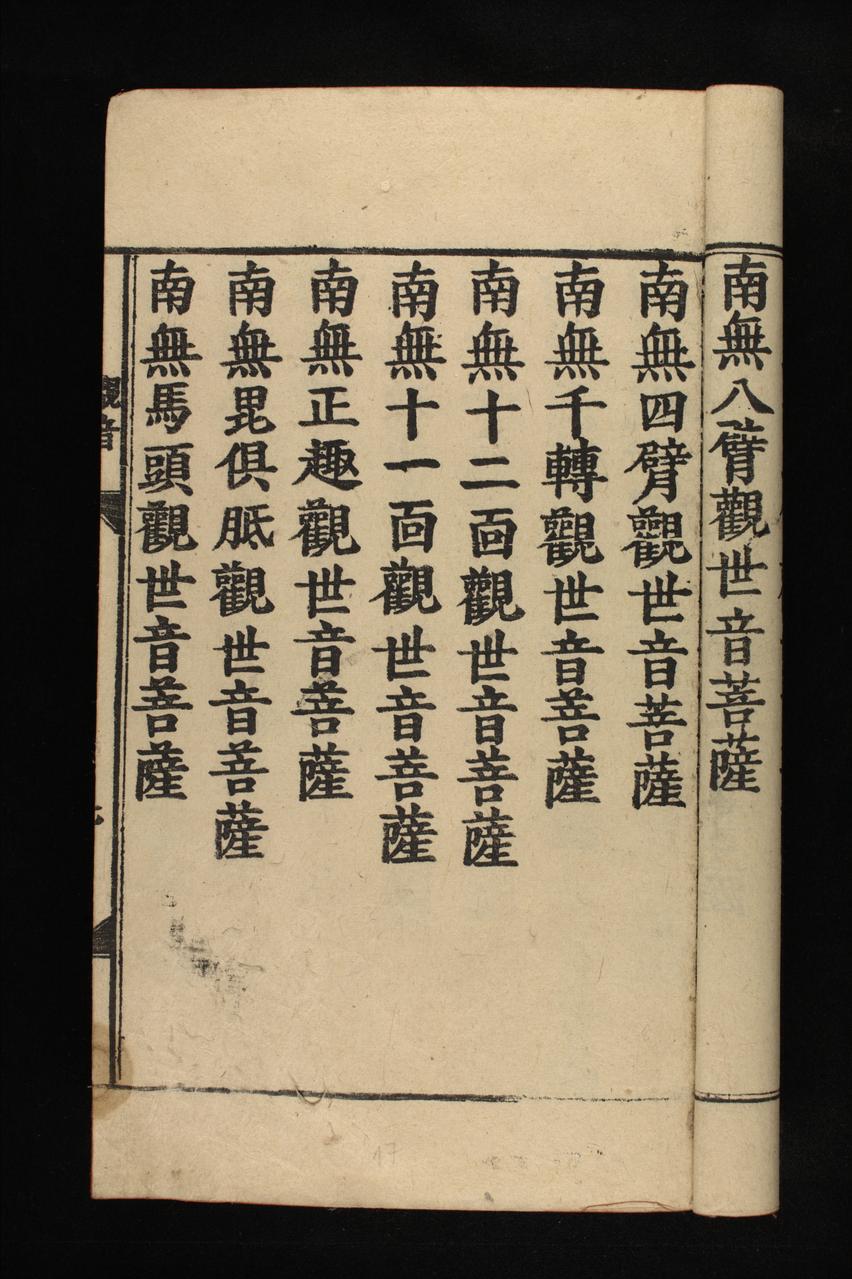 南無八臂觀世音菩薩
南無四臂觀世音菩薩
南無千轉觀世音菩薩
南無十二面觀世音菩薩
南無十一面觀世音菩薩
南無正趣觀世音菩薩
南無毘俱胝觀世音菩薩
南無馬頭觀世音菩薩
觀音
17